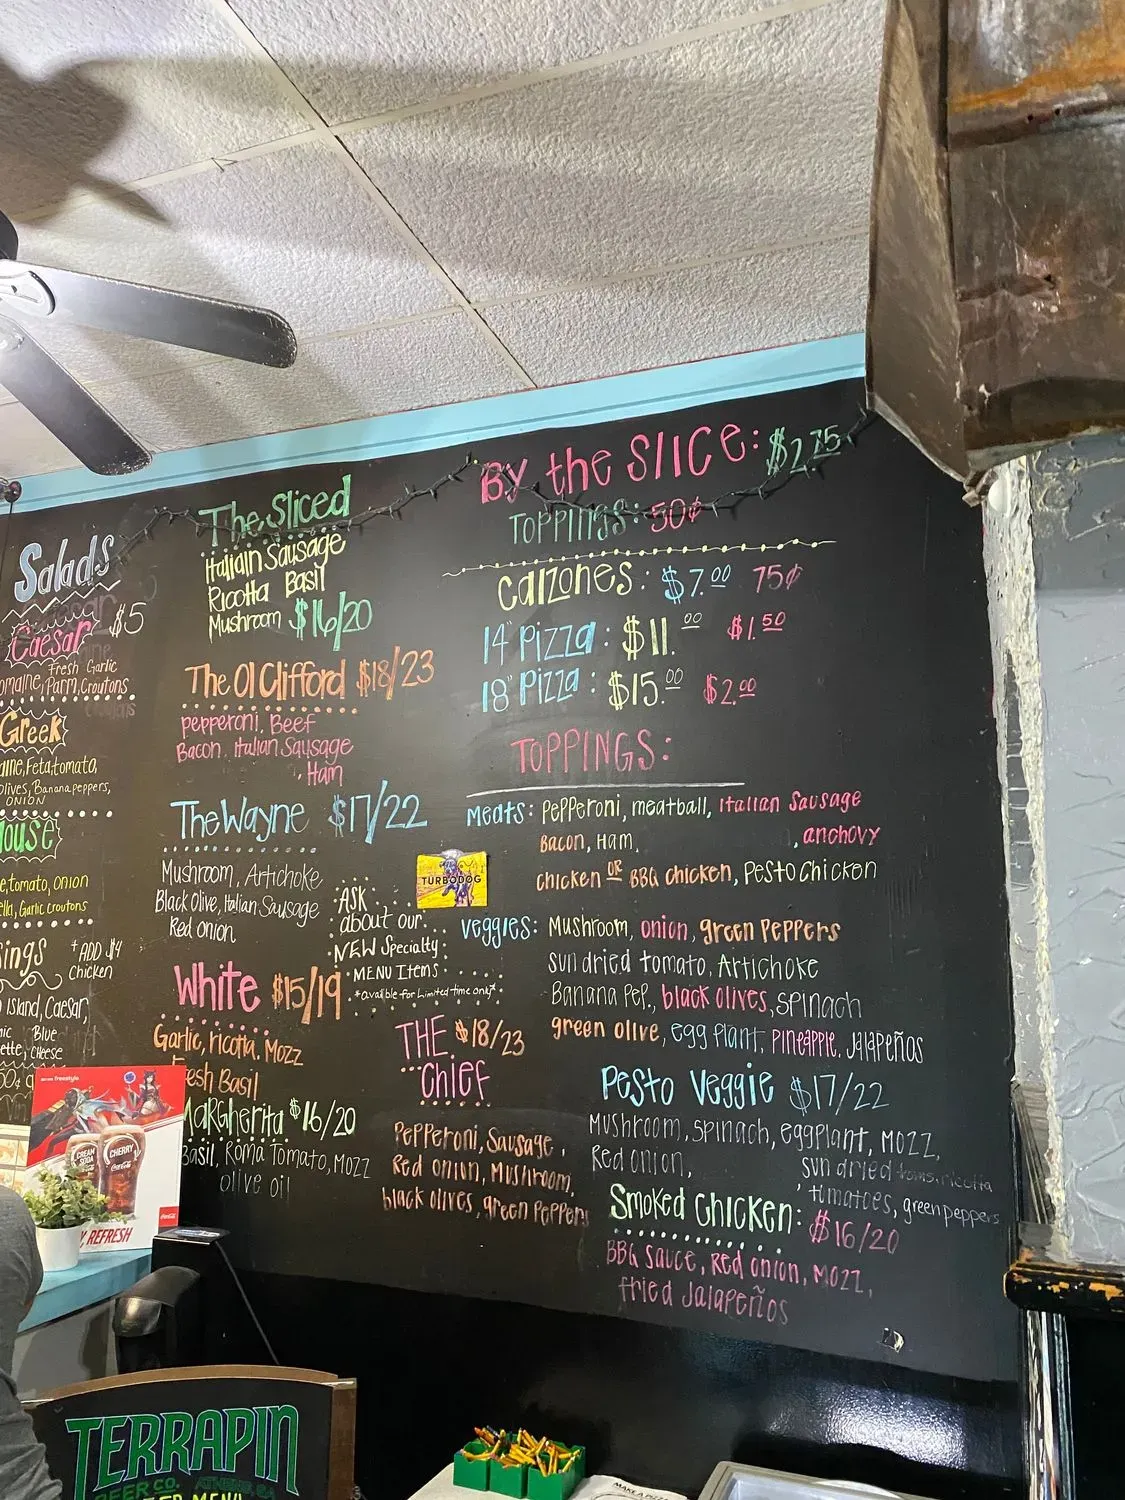 Salads
Caesar $5
Fresh Garlic
Parm, Croutons
Greek
Feta, tomato,
Banana peppers,
ONION
tomato, onion
Garlic croutons
+ADD $4
Chicken
Island, Caesar,
Blue
cheese
The Sliced
Italiain Sausage
Ricotta Basil
Mushroom $16/20
The Ol Clifford $18/23
pepperoni, Beef
Bacon, Italian Sausage
, Ham
The Wayne $17/22
Mushroom, Artichoke
Black Olive, Italian Sausage
Red onion
ASK
about our
NEW Specialty
MENU Items
*available for Limited time only*
TURBODOG
White $15/19
Garlic, ricotta, Mozz
Fresh Basil
Margherita $16/20
Basil, Roma Tomato, Mozz
olive oil
THE $18/23
Chief
Pepperoni, Sausage,
Red onion, Mushroom,
black olives, green Peppers
By the Slice: $2.75
TOPPINGS: 50¢
Calzones: $7.00 75¢
14" Pizza: $11.00 $1.50
18" Pizza: $15.00 $2.00
TOPPINGS:
Meats: Pepperoni, meatball, Italian Sausage
Bacon, Ham, , anchovy
chicken OR BBQ chicken, Pesto Chicken
veggies: Mushroom, onion, green Peppers
sun dried tomato, Artichoke
Banana Pep., black olives, spinach
green olive, egg plant, pineapple, Jalapeños
Pesto Veggie $17/22
Mushroom, spinach, eggplant, Mozz,
Red onion, sun dried
, tomatoes, green peppers
Smoked Chicken: $16/20
BBQ Sauce, Red onion, Mozz,
fried Jalapeños
freestyle
CREAM
SODA
CHERRY
Coca-Cola
REFRESH
TERRAPIN
BEER CO. ATHENS, GA
BEER MENU
MAKE A PIZZA